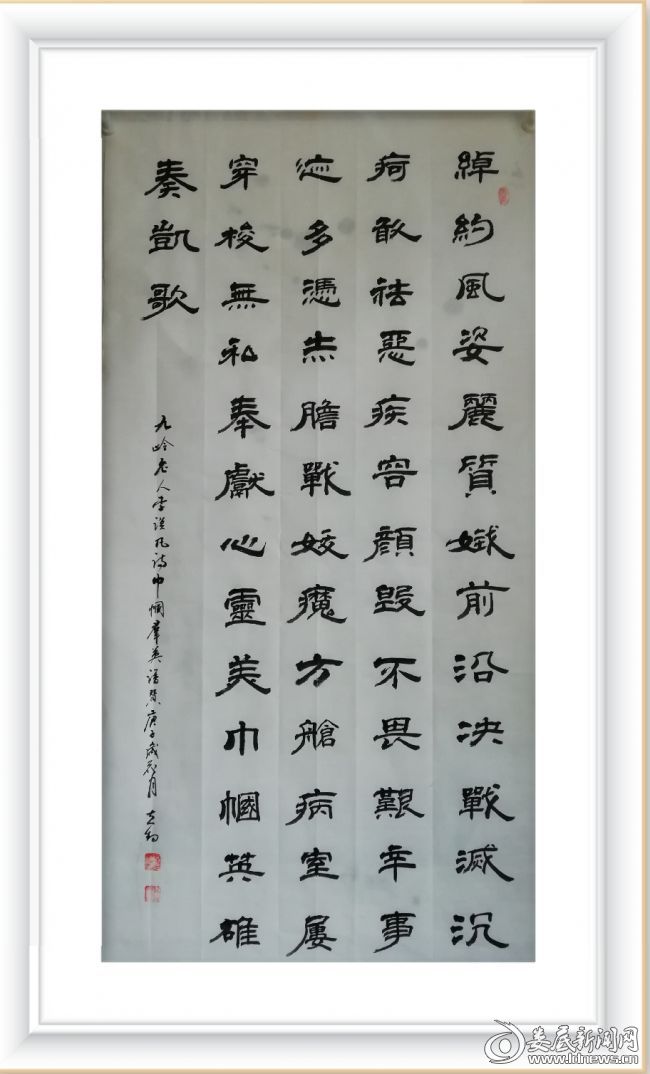 綽約風姿麗質娥前沿決戰滅沉
疴敢祛惡疾容顏毀不畏艱辛事
迹多憑赤膽戰妖魔方艙病室屢
穿梭無私奉獻心靈美巾幗英雄
奏凱歌
九齡老人李凡詩巾幗羣英譜庚子歲月
娄底新闻网
www.ldnews.cn